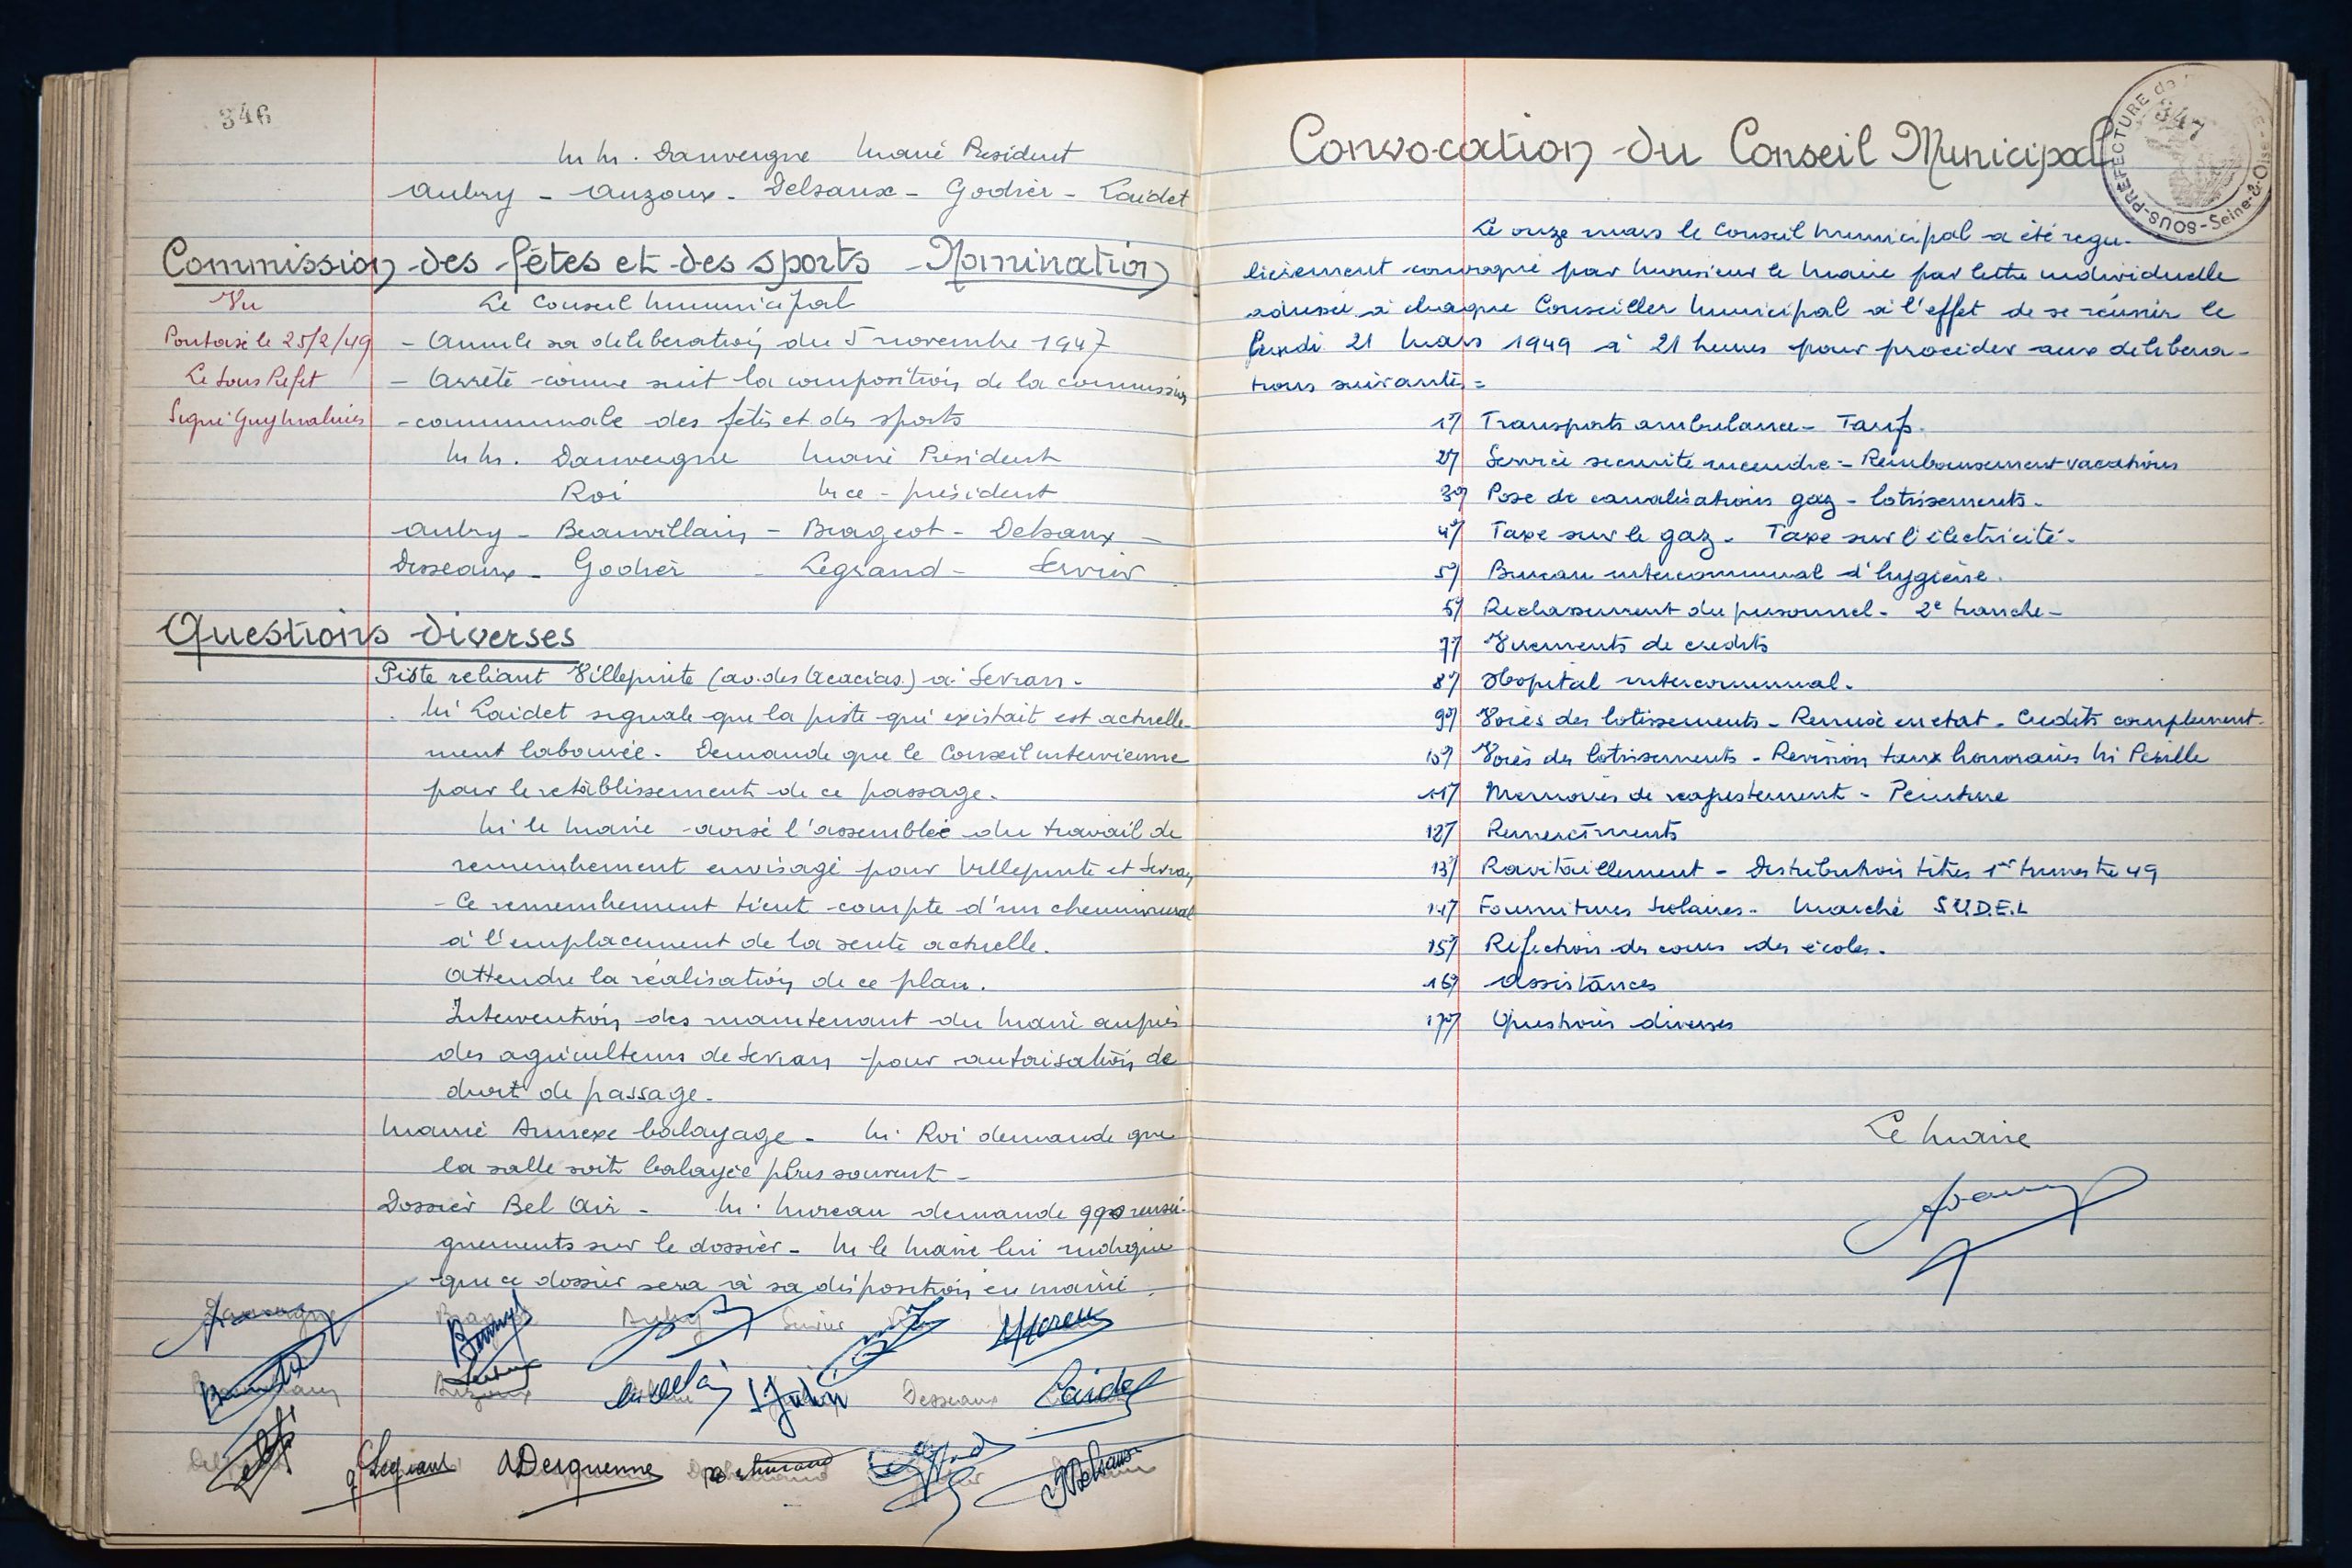 346
MM. Dauvergne Maire Président
Aubry - Auzoux - Delsaux - Godier - Laidet
Commission des fêtes et des sports - Nomination
Vu
Le Conseil Municipal
Pontoise le 25/2/49
- Annule sa délibération du 5 novembre 1947
Le Sous Préfet
- Arrête comme suit la composition de la commission
Signé Guy
- communale des fêtes et des sports
MM. Dauvergne Maire Président
Roi Vice-président
Aubry - Beauvillain - Brageot - Delsaux -
Desseaux - Godier - Legrand - Servier
Questions diverses
Piste reliant Villepinte (av. des Acacias) à Sevran -
M. Laidet signale que la piste qui existait est actuelle-
ment labourée. Demande que le Conseil intervienne
pour le rétablissement de ce passage.
M. le Maire avise l'assemblée du travail de
remembrement envisagé pour Villepinte et Sevran
- Ce remembrement tient compte d'un chemin rural
à l'emplacement de la sente actuelle.
Attendre la réalisation de ce plan.
Intervention dès maintenant du Maire auprès
des agriculteurs de Sevran pour autorisation de
droit de passage.
Mairie Annexe balayage - M. Roi demande que
la salle soit balayée plus souvent -
Dossier Bel Air - M. Mureau demande qqs rensei-
gnements sur le dossier - M le Maire lui indique
que ce dossier sera à sa disposition en mairie.
Dauvergne Aubry Servier
Auzoux Desseaux Laidet
Legrand Derquenne Delsaux
Convocation du Conseil Municipal
SOUS-PRÉFECTURE de Seine-&-Oise
347
Le onze mars le Conseil Municipal a été régu-
lièrement convoqué par Monsieur le Maire par lettre individuelle
adressée à chaque Conseiller Municipal à l'effet de se réunir le
Lundi 21 Mars 1949 à 21 heures pour procéder aux délibéra-
tions suivantes =
1°/ Transports ambulance - Tarif.
2°/ Service sécurité incendie - Remboursement vacations
3°/ Pose de canalisations gaz - lotissements.
4°/ Taxe sur le gaz - Taxe sur l'électricité.
5°/ Bureau intercommunal d'hygiène.
6°/ Reclassement du personnel - 2e tranche -
7°/ Virements de crédits
8°/ Hôpital intercommunal.
9°/ Voies des lotissements - Remise en état - Crédits complément.
10°/ Voies des lotissements - Révision taux honoraires M.
11°/ Mémoires de réajustement - Peinture
12°/ Remerciments
13°/ Ravitaillement - Distribution titres 1er trimestre 49
14°/ Fournitures scolaires - Marché S.U.D.E.L
15°/ Réfection des cours des écoles.
16°/ Assistances
17°/ Questions diverses
Le Maire